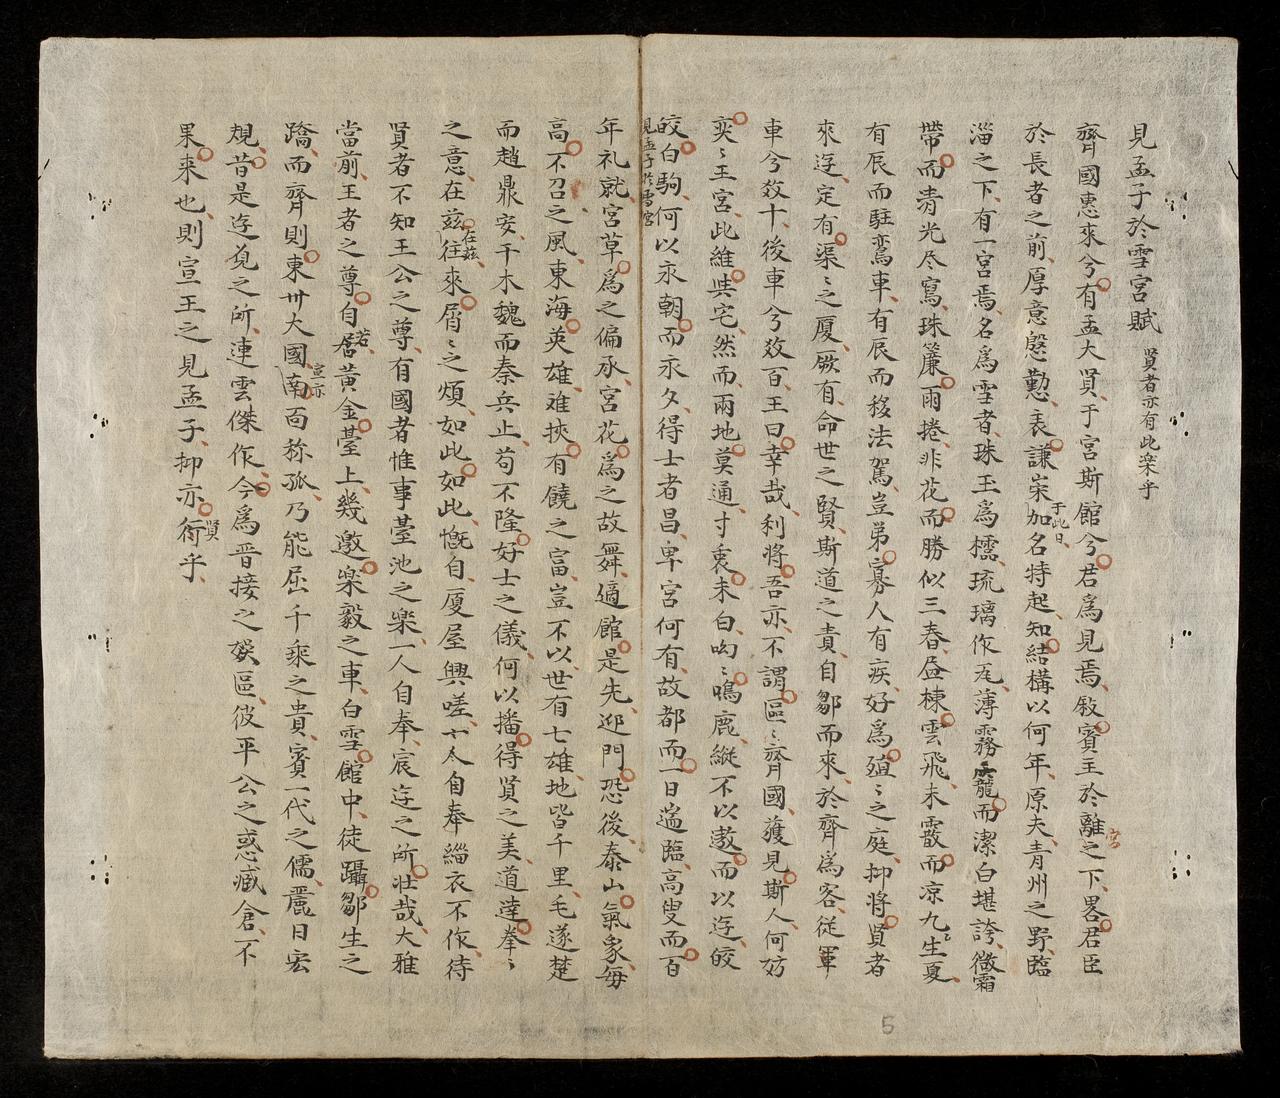 見孟子於雪宮賦 賢者亦有此楽乎
齊國惠來兮有孟大賢于宮斯館兮君爲見焉敘賓主於離宮之下畧君臣
於長者之前厚意慇懃表謙崇加于此日名特起知結構以何年原夫青州之野臨
淄之下有一宮焉名爲雪者珠玉爲櫺琉璃作瓦薄霧籠而潔白堪誇微霜
帶而清光尽寫珠簾雨捲非花而勝似三春昼棟雲飛未霰而凉九生夏
有辰而駐鸞車有辰而移法駕豈弟寡人有疾好爲殖〻之庭抑將賢者
來迓定有渠〻之厦厥有命世之賢斯道之責自鄒而來於齊爲客從軍
車兮效十後車兮效百王曰幸哉利將吾亦不謂區〻齊國蒦見斯人何妨
奕〻王宮此維與宅然而兩地莫通寸衷未白呦〻鳴鹿縱不以遨而以迓皎
皎白駒何以永朝而永夕得士者昌卑宮何有故都而一日遥臨高叟而百
見孟子於雪宮
年礼就宮草爲之偏承宮花爲之故舞適館是先迎門恐後泰山氣象每
高不召之風東海英雄难挾有饒之富豈不以世有七雄地皆千里毛遂楚
而趙鼎安干木魏而秦兵止苟不隆好士之儀何以播得賢之美道逹拳〻
之意在兹在茲往來屑〻之煩如此如此慨自厦屋興嗟六人自奉緇衣不作待
賢者不知王公之尊有國者惟事臺池之楽一人自奉宸迓之所壮哉大雅
當前王者之尊自若居黄金臺上幾邀楽毅之車白雪館中徒躡鄒生之
蹻而齊則東卅大國宣亦南面称孤乃能屈千乘之貴賓一代之儒麗日宏
規昔是迓覓之所連雲傑作今爲晋接之娱區彼平公之惑臧倉不
果来也則宣王之見孟子抑亦賢衍乎
5